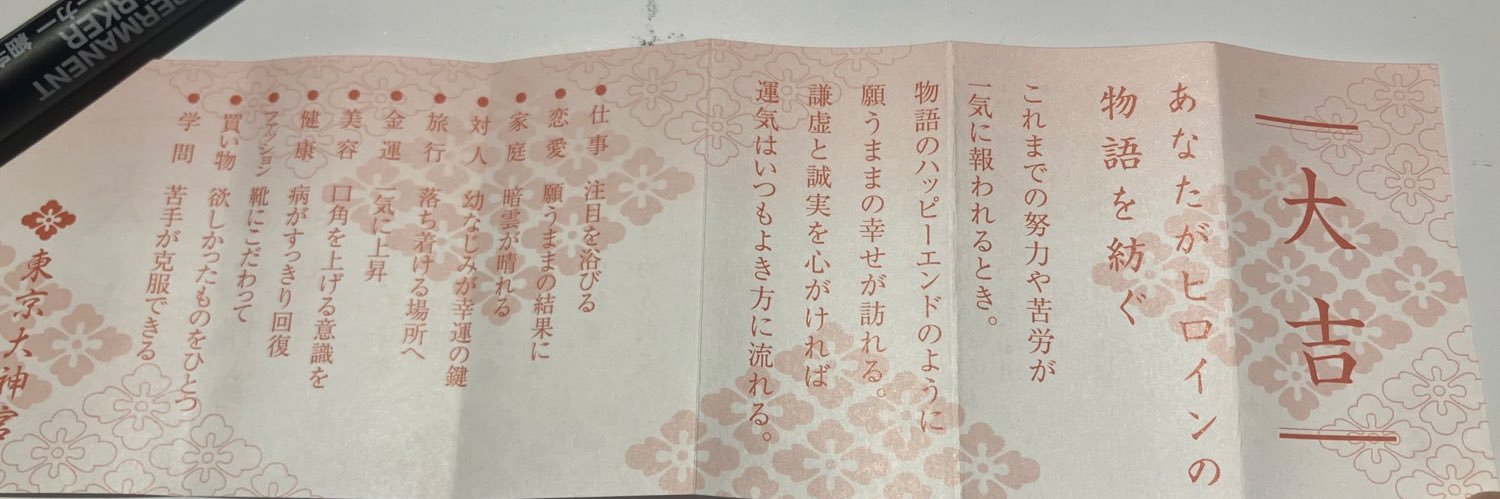 大吉
あなたがヒロインの
物語を紡ぐ
これまでの努力や苦労が
一気に報われるとき。
物語のハッピーエンドのように
願うままの幸せが訪れる。
謙虚と誠実を心がければ
運気はいつもよき方に流れる。
●仕事 注目を浴びる
●恋愛 願うままの結果に
●家庭 暗雲が晴れる
●対人 幼なじみが幸運の鍵
●旅行 落ち着ける場所へ
●金運 一気に上昇
●美容 口角を上げる意識を
●健康 病がすっきり回復
●ファッション 靴にこだわって
●買い物 欲しかったものをひとつ
●学問 苦手が克服できる
東京大神宮
PERMANENT
MARKER